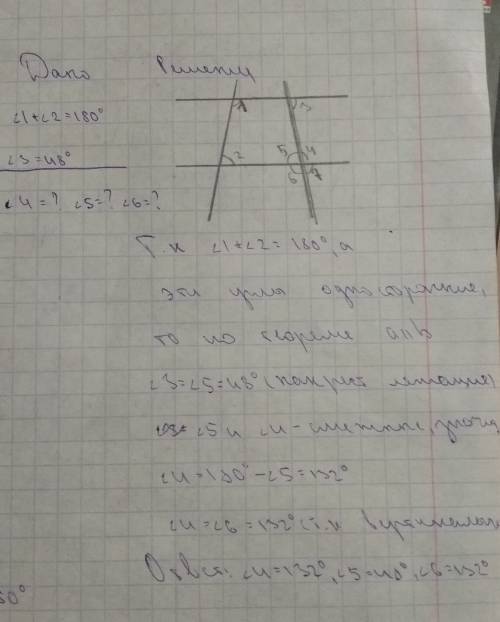 Дано
Решение
∠1+∠2=180°
∠3=48°
∠4=? ∠5=? ∠6=?
1
3
2
5
4
6
7
Т.к ∠1+∠2=180°, а
эти углы односторонние,
то по теореме a||b
∠3=∠5=48° (накрест лежащие)
∠5 и ∠4-смежные, значит
∠4=180°-∠5=132°
∠4=∠6=132° т.к вертикальные
Ответ: ∠4=132°, ∠5=48°, ∠6=132°